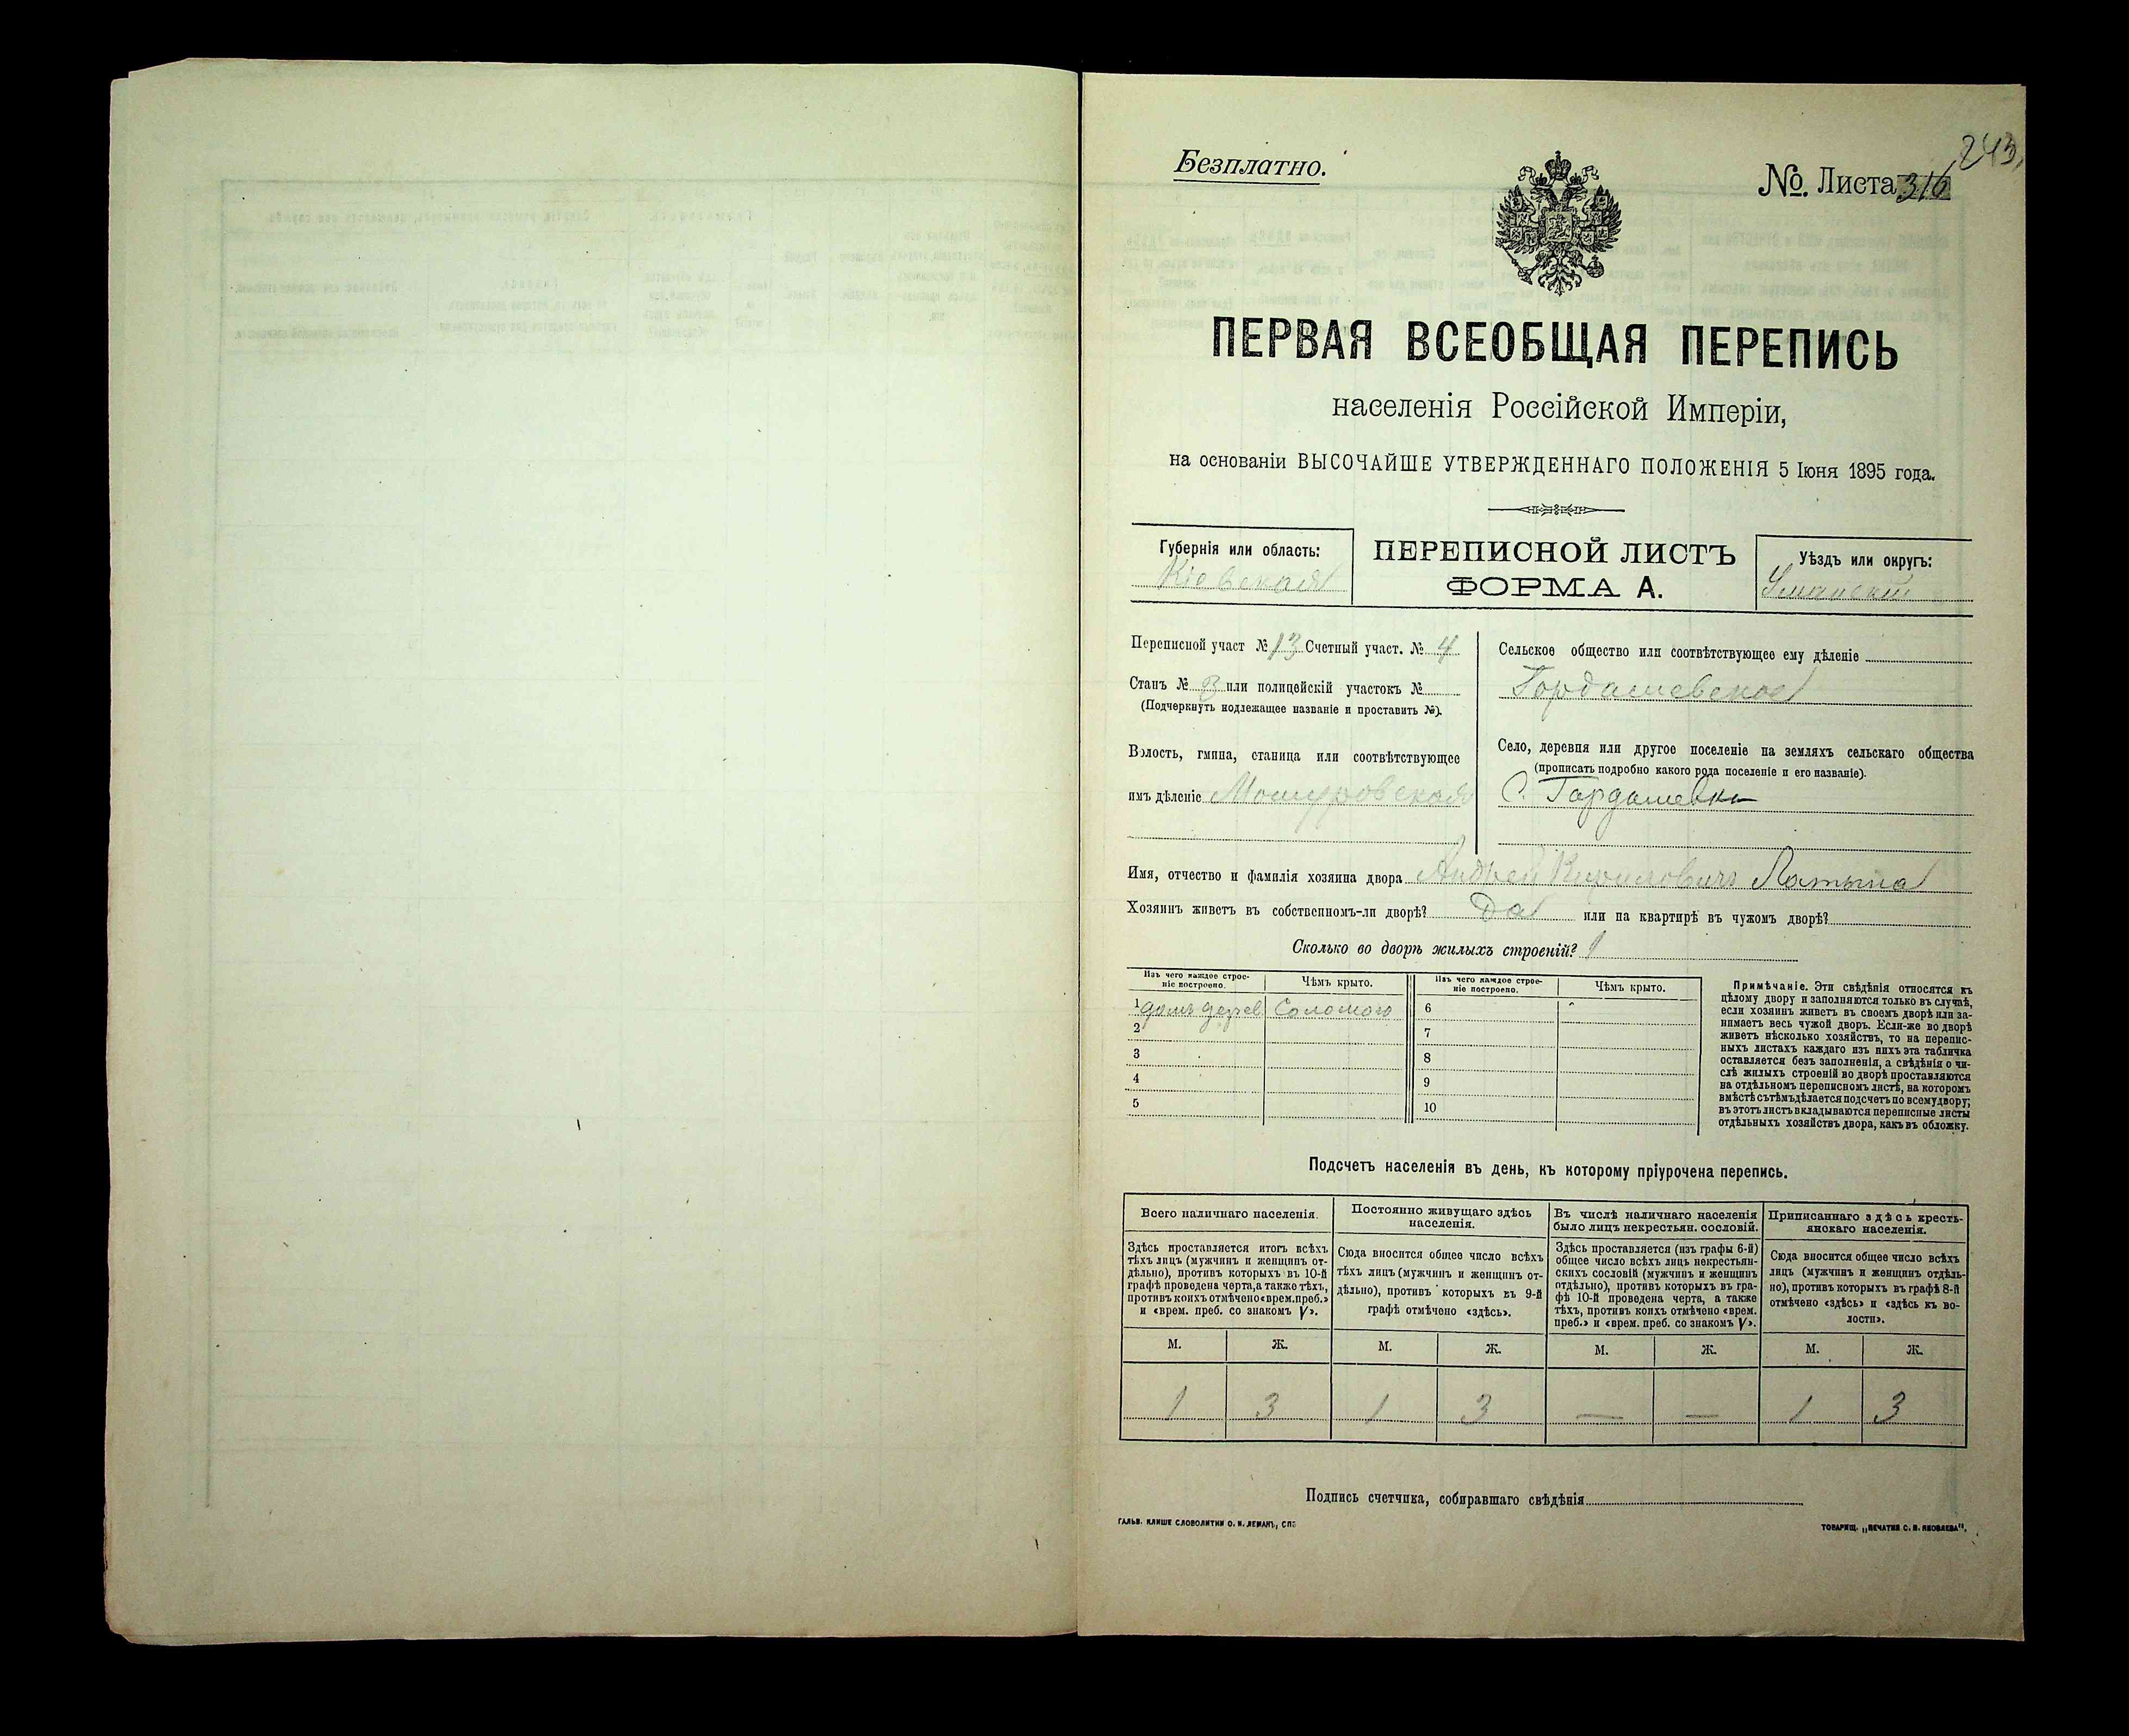 243
Безплатно.
№. Листа 316
ПЕРВАЯ ВСЕОБЩАЯ ПЕРЕПИСЬ
населенія Россійской Имперіи,
на основаніи ВЫСОЧАЙШЕ УТВЕРЖДЕННАГО ПОЛОЖЕНІЯ 5 Іюня 1895 года.
Губернія или область:
Кіевская
ПЕРЕПИСНОЙ ЛИСТЪ
ФОРМА А.
Уѣздъ или округъ:
Уманскій
Переписной участ № 13 Счетный участ. № 4
Станъ № 3 или полицейскій участокъ №
(Подчеркнуть подлежащее названіе и проставить №).
Волость, гмина, станица или соотвѣтствующее
имъ дѣленіе Мошуровская
Сельское общество или соотвѣтствующее ему дѣленіе
Гордашевское
Село, деревня или другое поселеніе на земляхъ сельскаго общества
(прописать подробно какого рода поселеніе и его названіе).
С. Гордашевка
Имя, отчество и фамилія хозяина двора Андрей Кириловичъ
Хозяинъ живетъ въ собственномъ-ли дворѣ? Да или на квартирѣ въ чужомъ дворѣ?
Сколько во дворѣ жилыхъ строеній? 1
Изъ чего каждое строе-
ніе построено.
Чѣмъ крыто.
Изъ чего каждое строе-
ніе построено.
Чѣмъ крыто.
1 домъ дерев Соломою 6
2 7
3 8
4 9
5 10
Примѣчаніе. Эти свѣдѣнія относятся къ
цѣлому двору и заполняются только въ случаѣ,
если хозяинъ живетъ въ своемъ дворѣ или за-
нимаетъ весь чужой дворъ. Если-же во дворѣ
живетъ нѣсколько хозяйствъ, то на перепис-
ныхъ листахъ каждаго изъ нихъ эта табличка
оставляется безъ заполненія, а свѣдѣнія о чи-
слѣ жилыхъ строеній во дворѣ проставляются
на отдѣльномъ переписномъ листѣ, на которомъ
вмѣстѣ съ тѣмъ дѣлается подсчетъ по всему двору;
въ этотъ листъ вкладываются переписные листы
отдѣльныхъ хозяйствъ двора, какъ въ обложку.
Подсчетъ населенія въ день, къ которому пріурочена перепись.
Всего наличнаго населенія.
Здѣсь проставляется итогъ всѣхъ
тѣхъ лицъ (мужчинъ и женщинъ от-
дѣльно), противъ которыхъ въ 10-й
графѣ проведена черта, а также тѣхъ,
противъ коихъ отмѣчено «врем. преб.»
и «врем. преб. со знакомъ V».
Постоянно живущаго здѣсь
населенія.
Сюда вносится общее число всѣхъ
тѣхъ лицъ (мужчинъ и женщинъ от-
дѣльно), противъ которыхъ въ 9-й
графѣ отмѣчено «здѣсь».
Въ числѣ наличнаго населенія
было лицъ некрестьян. сословій.
Здѣсь проставляется (изъ графы 6-й)
общее число всѣхъ лицъ некрестьян-
скихъ сословій (мужчинъ и женщинъ
отдѣльно), противъ которыхъ въ гра-
фѣ 10-й проведена черта, а также
тѣхъ, противъ коихъ отмѣчено «врем.
преб.» и «врем. преб. со знакомъ V».
Приписаннаго здѣсь кресть-
янскаго населенія.
Сюда вносится общее число всѣхъ
лицъ (мужчинъ и женщинъ отдѣль-
но), противъ которыхъ въ графѣ 8-й
отмѣчено «здѣсь» и «здѣсь къ во-
лости».
М. Ж. М. Ж. М. Ж. М. Ж.
1 3 1 3 — — 1 3
Подпись счетчика, собиравшаго свѣдѣнія
ГАЛЬВ. КЛИШЕ СЛОВОЛИТНИ О. И. ЛЕМАНЪ, СПБ
ТОВАРИЩ. „ПЕЧАТНЯ С. П. ЯКОВЛЕВА".